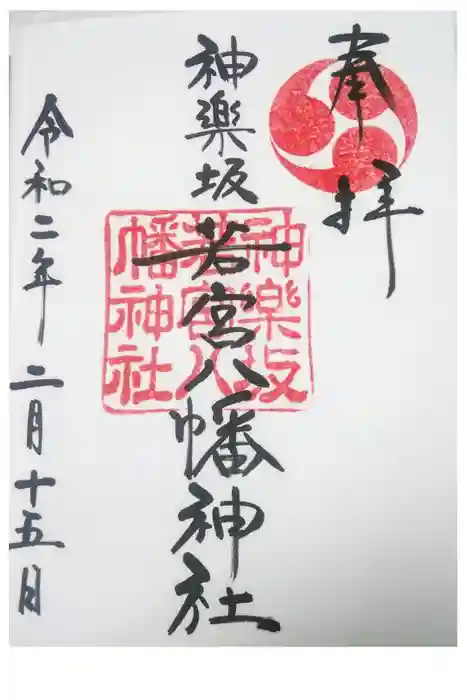 奉拝
神楽坂若宮八幡神社
神樂坂
若宮八
幡神社
令和二年二月十五日